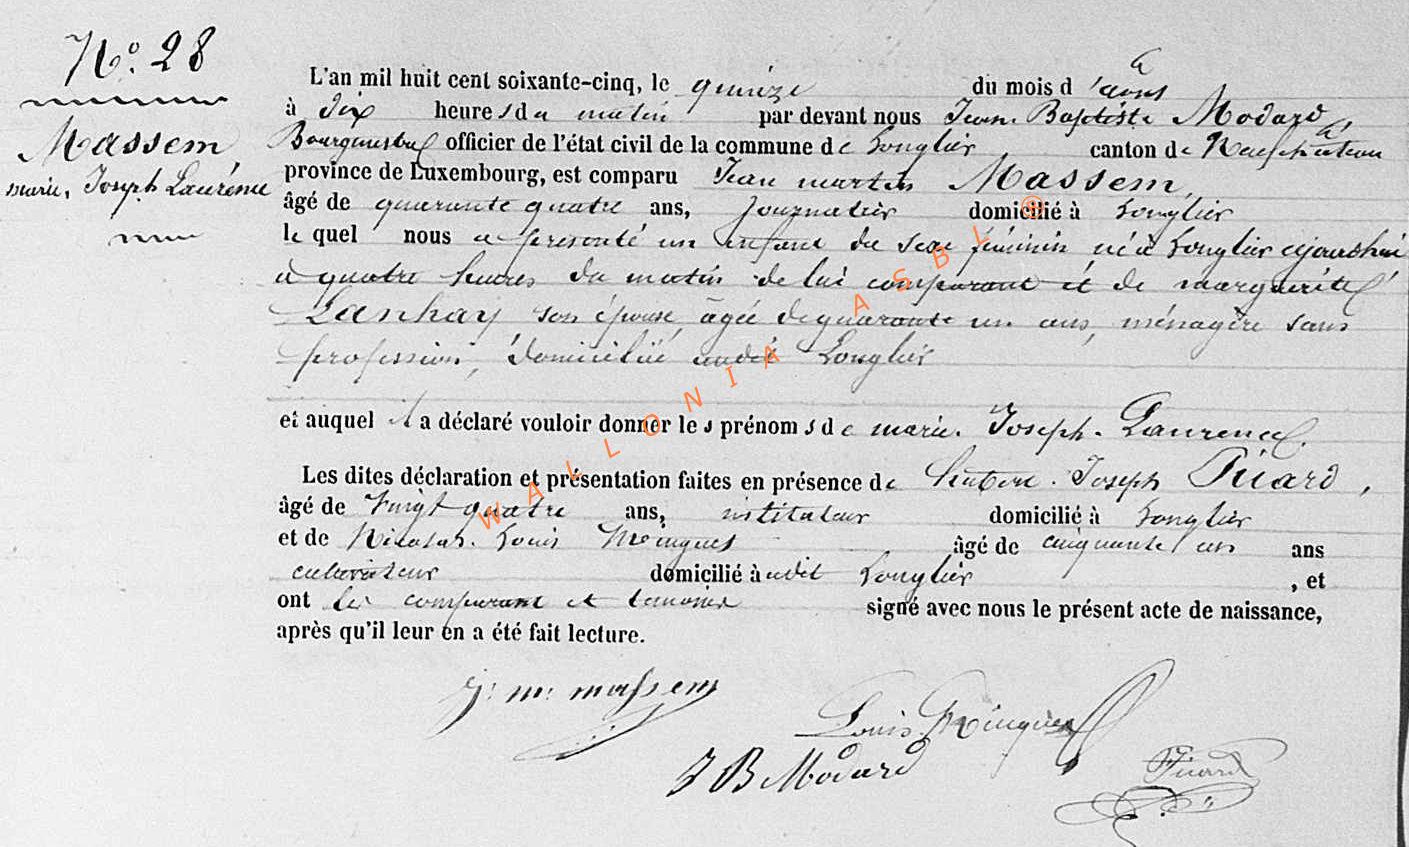 N° 28
Massem
marie, Joseph Laurence
L'an mil huit cent soixante-cinq, le quinze du mois d'août
à dix heures du matin par devant nous Jean Baptiste Modard,
Bourgmestre officier de l'état civil de la commune de Longlier canton de Neufchâteau
province de Luxembourg, est comparu Jean martin Massem,
âgé de quarante quatre ans, journalier domicilié à Longlier
lequel nous a présenté un enfant du sexe féminin né à Longlier aujourd'hui
à quatre heures du matin de lui comparant et de marguerite
Lanhay son épouse, âgée de quarante un ans, ménagère sans
profession, domiciliée audit Longlier
et auquel il a déclaré vouloir donner les prénoms de marie. Joseph. Laurence.
Les dites déclaration et présentation faites en présence de Joseph Picard,
âgé de vingt quatre ans, instituteur domicilié à Longlier
et de Nicolas. Louis Meinguet âgé de cinquante un ans
cultivateur domicilié à udit Longlier, et
ont les comparant et temoins signé avec nous le présent acte de naissance,
après qu'il leur en a été fait lecture.
J. m. massem
Louis
J B Modard
Picard
WALLONIA ASBL ®